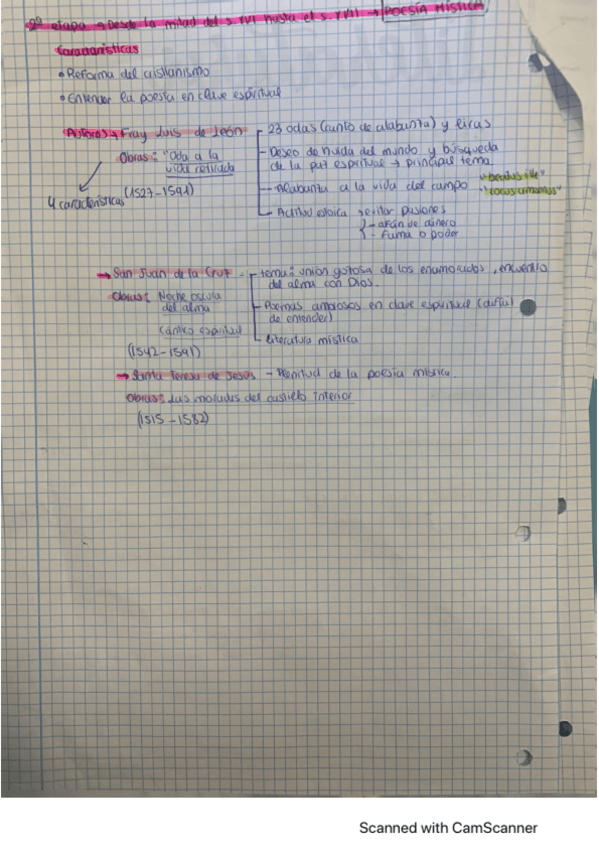 2º etapa → Desde la mitad del s. XVI hasta el s. XVII → POESÍA MÍSTICA
Características
• Reforma del cristianismo
• Entender la poesía en clave espiritual
Autores → Fray Luis de León
Obras: "Oda a la vida retirada
(1527-1591)
4 características
- 23 odas (canto de alabanza) y liras
- Deseo de huida del mundo y búsqueda
de la paz espiritual → principal tema
- Alabanza a la vida del campo "beatus ille"
"locus amoenus"
- Actitud estoica → evitar pasiones
- afán de dinero
- Fama o poder
→ San Juan de la Cruz
Obras: Noche oscura
del alma
Cántico espiritual
(1542-1591)
- tema: unión gozosa de los enamorados, encuentro
del alma con Dios.
- Poemas amorosos en clave espiritual (difícil
de entender)
- Literatura mística
→ Santa Teresa de Jesús - Plenitud de la poesía mística.
Obras: Las moradas del castillo interior
(1515-1582)
Scanned with CamScanner